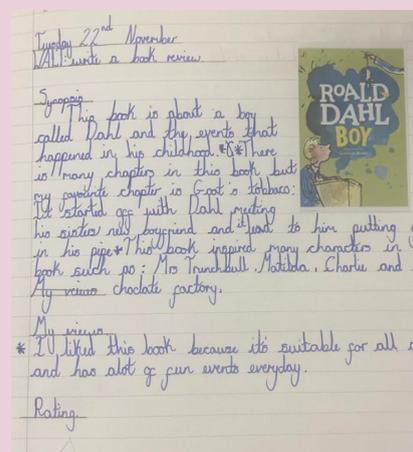 Tuesday 22nd November
WALT: write a book review
Synopsis
This book is about a boy
called Dahl and the events that
happened in his childhood. *There
is many chapters in this book but
my favourite chapter is Goat's tobbaco:
It started off with Dahl meeting
his sisters new boyfriend and it lead to him putting
in his pipe* This book inspired many characters in
book such as: Mrs Trunchbull, Matilda, Charlie and
My views choclate factory.
My views
* I liked this book because it's suitable for all
and has alot of fun events everyday.
Rating
ROALD
DAHL
BOY